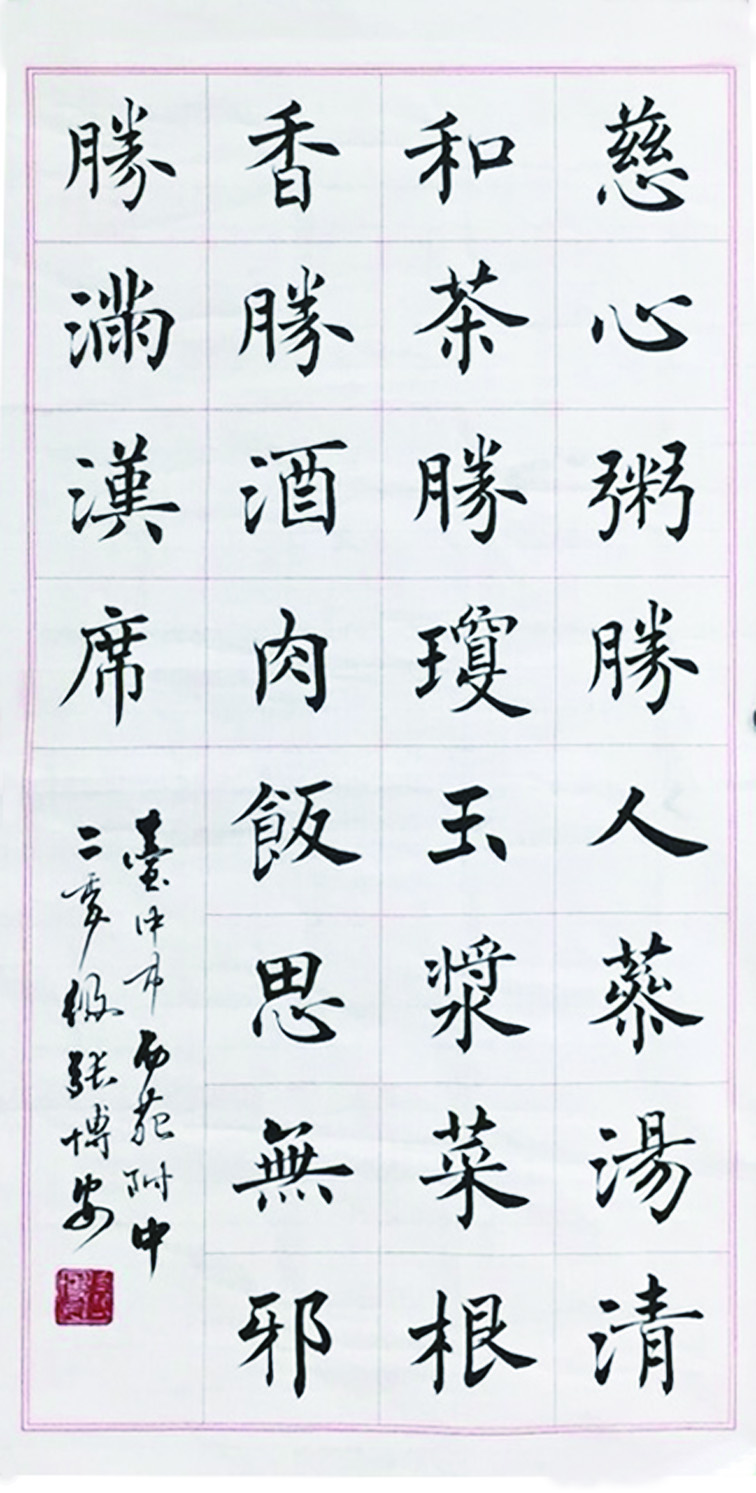 慈心粥勝人蔘湯清
和茶勝瓊玉漿菜根
香勝酒肉飯思無邪
勝滿漢席
臺中市西苑附中
二年級張博安